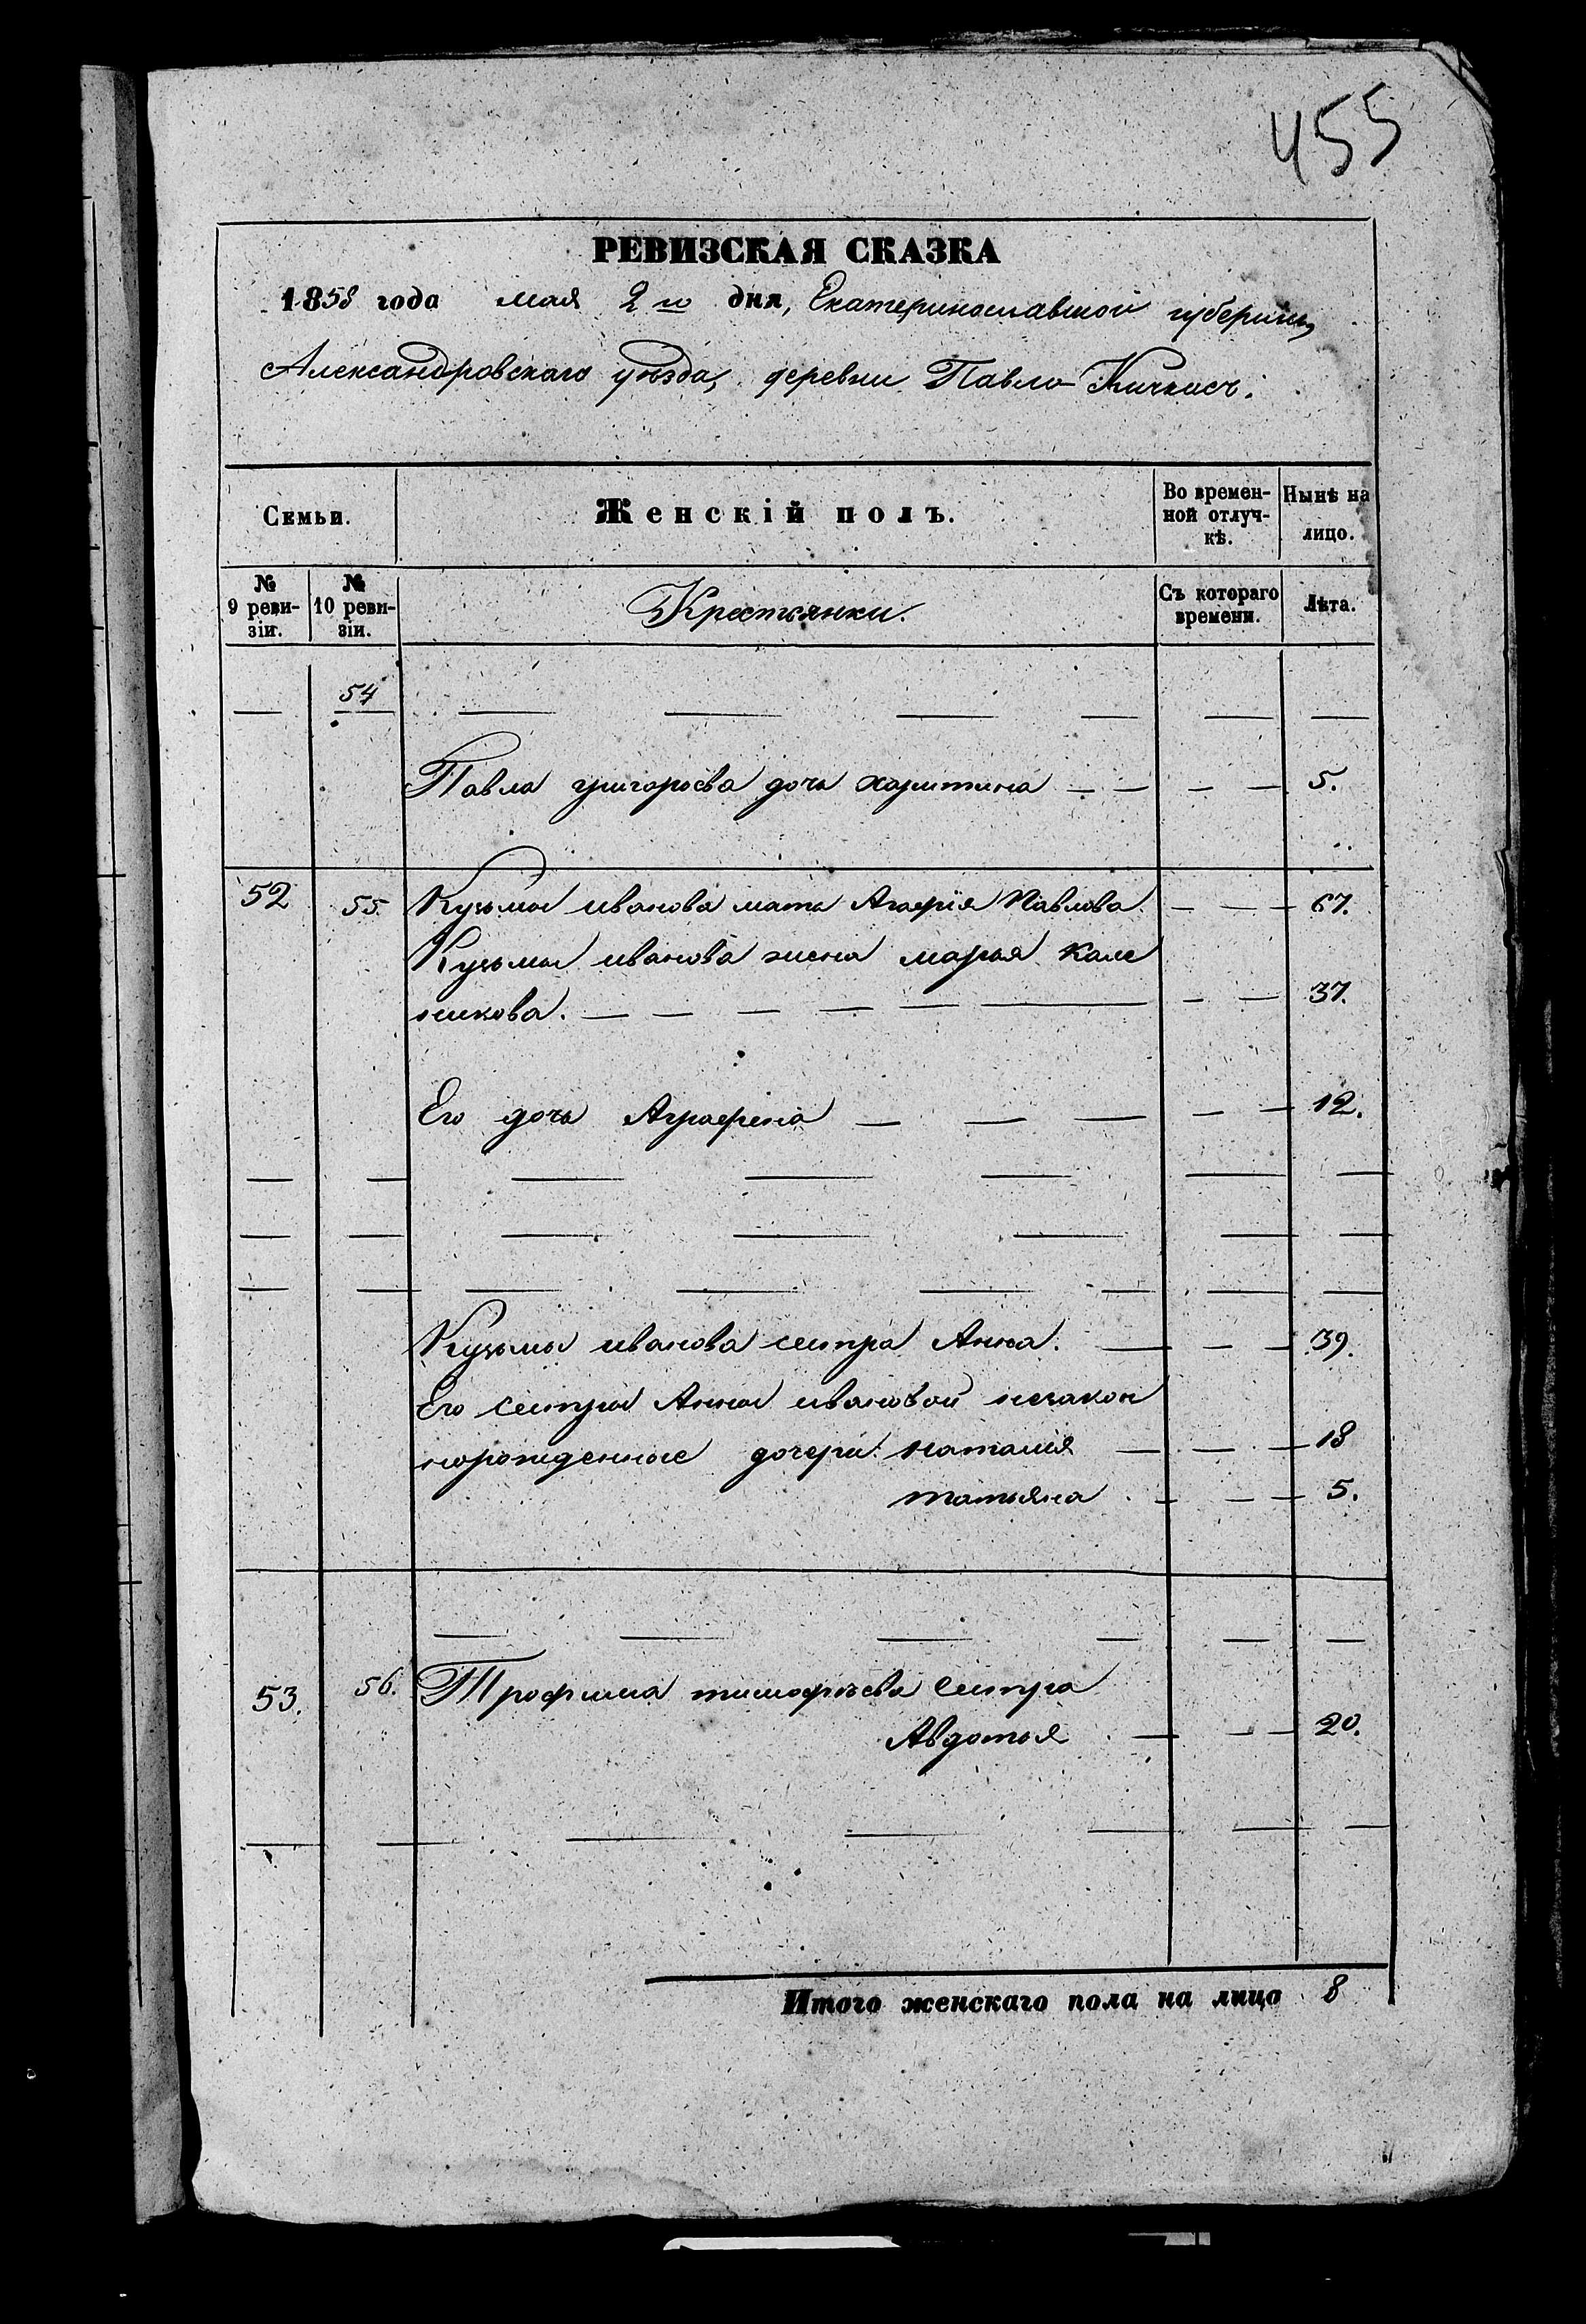 455
РЕВИЗСКАЯ СКАЗКА
1858 года мая 2го дня, Екатеринославской губернии,
Александровскаго уѣзда, деревни Павло-Кичкасъ.
Семьи.
Женскій полъ.
Во времен-
ной отлуч-
кѣ.
Нынѣ на
лицо.
№
9 реви-
зіи.
№
10 реви-
зіи.
Крестьянки.
Съ котораго
времени.
Лѣта.
— 54 — — — — — —
Павла григорьева дочь харитина — — — — 5.
52 55. Кузьмы иванова мать Агафія Павлова. — — — 67.
Кузьмы иванова жена марья Кале
никова. — — — — — — — — 37.
Его дочь Аграфена — — — — — 12.
— — — — — — —
— — — — — — —
— — — — — — — —
Кузьмы иванова сестра Анна. — — — 39.
Его сестры Анны ивановой незакон
норожденные дочери: наталія — — — 18
татьяна — — — 5.
— — — — — —
53. 56. Трофима тимофѣева сестра
Авдотья — — — 20.
— — — — — — —
Итого женскаго пола на лицо 8